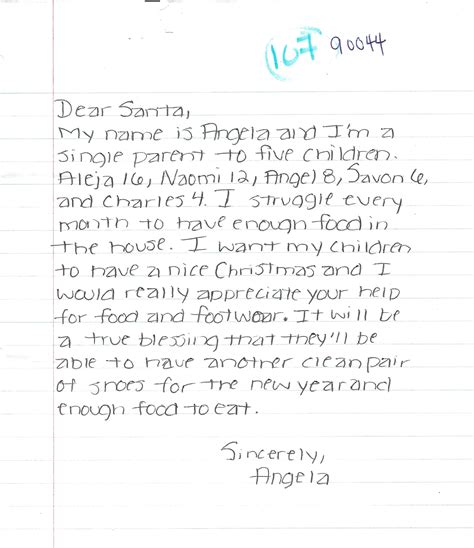 107 90044
Dear Santa,
My name is Angela and I'm a
single parent to five children.
Aleja 16, Naomi 12, Angel 8, Savon 6,
and Charles 4. I struggle every
month to have enough food in
the house. I want my children
to have a nice Christmas and I
would really appreciate your help
for food and footwear. It will be
a true blessing that they'll be
able to have another clean pair
of shoes for the new year and
enough food to eat.
Sincerely,
Angela